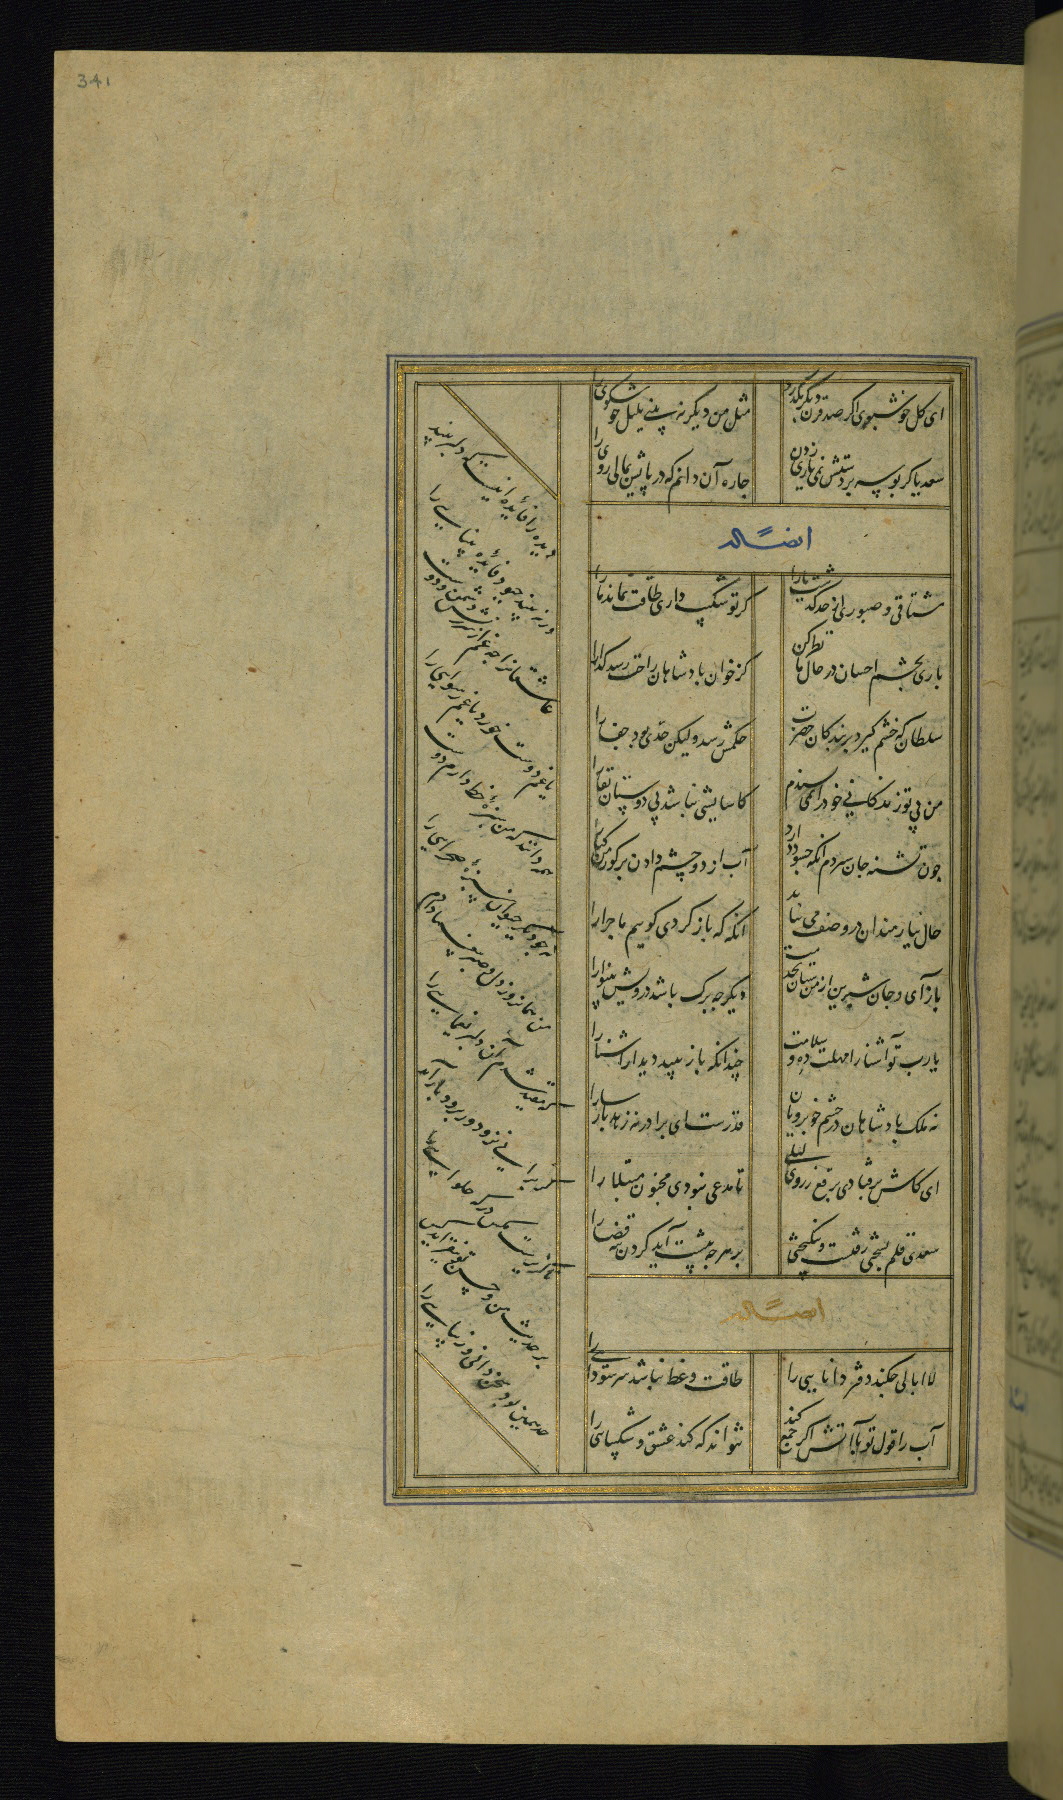 341
ای کل خوشبوی اکر صد قرن دیگر بگذرد
مثل من دیگر نه بینی بلبل خوشکوی را
سعدیا کر بوسه بر دستش نمی یاری زدن
چاره آن دانم که در پایش بمالی روی را
ایضاً له
مشتاقی و صبوری از حد گذشت یارا
کر تو شکیب داری طاقت نماند ما را
باری بچشم احسان در حال ما نظر کن
کز خوان پادشاهان راحت رسد کدا را
سلطان که خشم کیرد بر بندکان حضرت
حکمش رسد ولیکن حدی بود جفا را
من بی تو زندکانی خود را نمی پسندم
کاسایشی نباشد بی دوستان بقا را
چون تشنه جان سپردم آنکه چه سود دارد
آب از دو چشم دادن بر کور من کیا را
حال نیازمندان در وصف می نیاید
آنکه که باز کردی کوییم ماجرا را
باز آی و جان شیرین از من ستان بخدمت
دیگر چه برک باشد درویش بینوا را
یا رب تو آشنا را مهلت ده و سلامت
چندانکه باز بیند دیدار آشنا را
نه ملک پادشاهان در چشم خوبرویان
قدرست ای برادر نه زهد پارسا را
ای کاش برفتادی برقع ز روی لیلی
تا مدعی نبودی مجنون مبتلا را
سعدی قلم بسختی رفتست و نیکبختی
بر هر چه پیشت آید کردن بنه قضا را
ایضاً له
لاابالی چکند دفتر دانایی را
طاقت وعظ نباشد سر سودایی را
آب را قول تو با آتش اکر جمع کند
نتواند که کند عشق و شکیبایی را
دیده را فائده آنست که دلبر بیند
ور نه بیند چه بود فائده بینایی را
عاشقانرا چه غم از سرزنش دشمن و دوست
یا غم دوست خورد یا غم رسوایی را
همه دانند که من سبزهٔ خط دارم دوست
نه چو دیگر حیوان سبزهٔ صحرایی را
من همانروز دل و صبر بیغما دادم
که مقید شدم آن دلبر یغمایی را
سرو بکذار که
کر برانی نرود ور برود باز آید
ناکزیرست مکس دکه حلوایی را
بر حدیث من و حسن تو نیفزاید کس
حد همین بود سخن دانی و زیبایی را